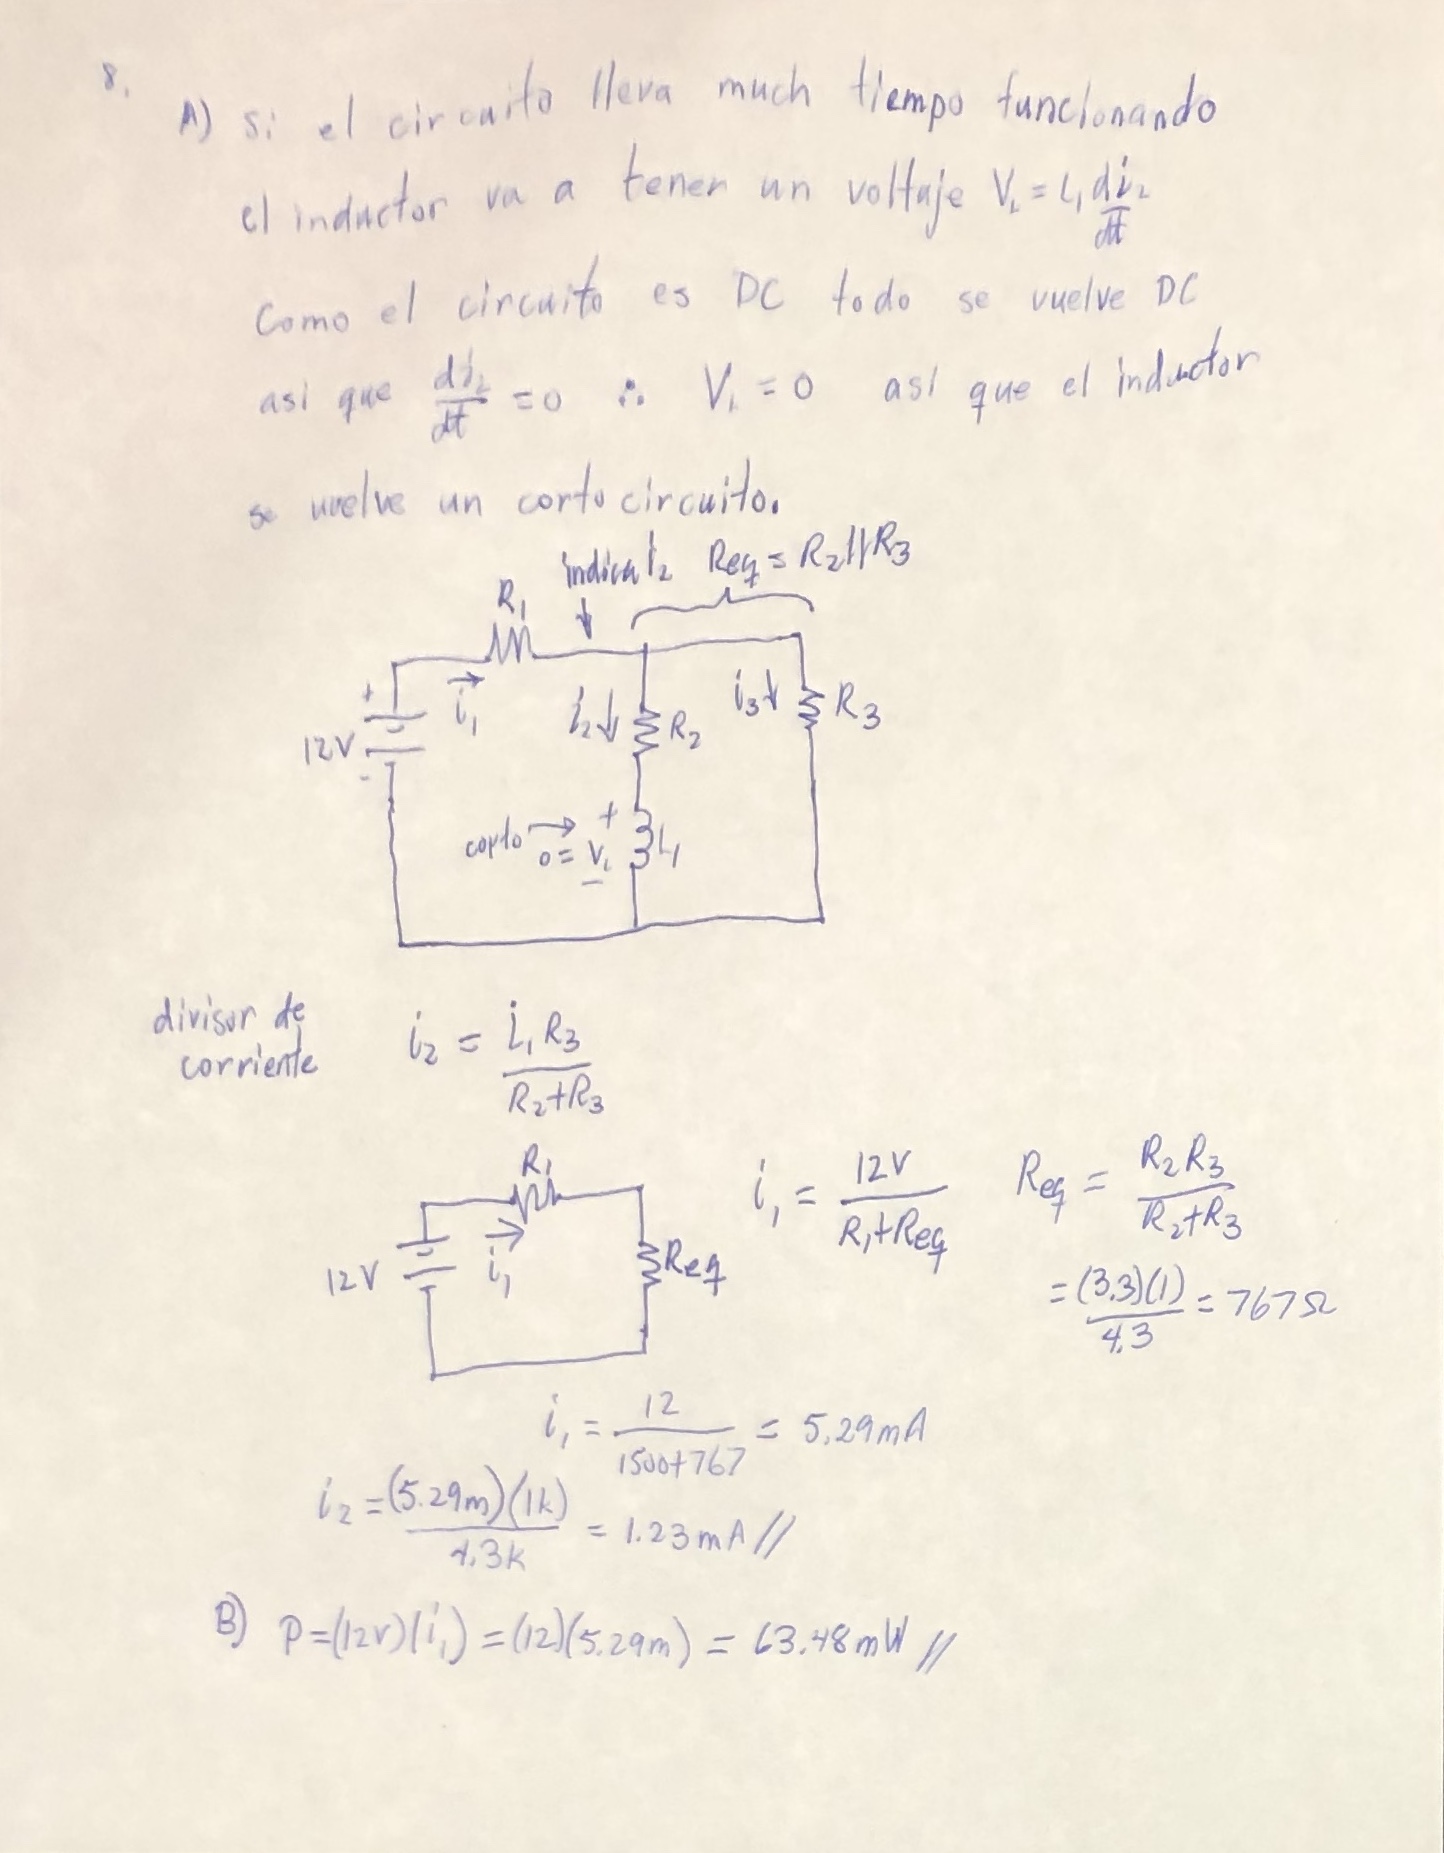 8.
A) Si el circuito lleva much tiempo funcionando
el inductor va a tener un voltaje V_L = L₁ di₂/dt
Como el circuito es DC todo se vuelve DC
asi que di₂/dt = 0 ∴ V_L = 0 así que el inductor
se vuelve un corto circuito.
indica i₂ Req = R₂||R₃
R₁
+ i₁ i₂↓ R₂ i₃↓ R₃
12V
-
corto → 0 = V_L + - L₁
divisor de
corriente
i₂ = i₁R₃/(R₂+R₃)
R₁
12V i₁ Req
i₁ = 12V/(R₁+Req) Req = R₂R₃/(R₂+R₃)
= (3.3)(1)/4.3 = 767Ω
i₁ = 12/(1500+767) = 5.29mA
i₂ = (5.29m)(1k)/4.3k = 1.23mA //
B) P=(12V)(i₁) = (12)(5.29m) = 63.48mW //